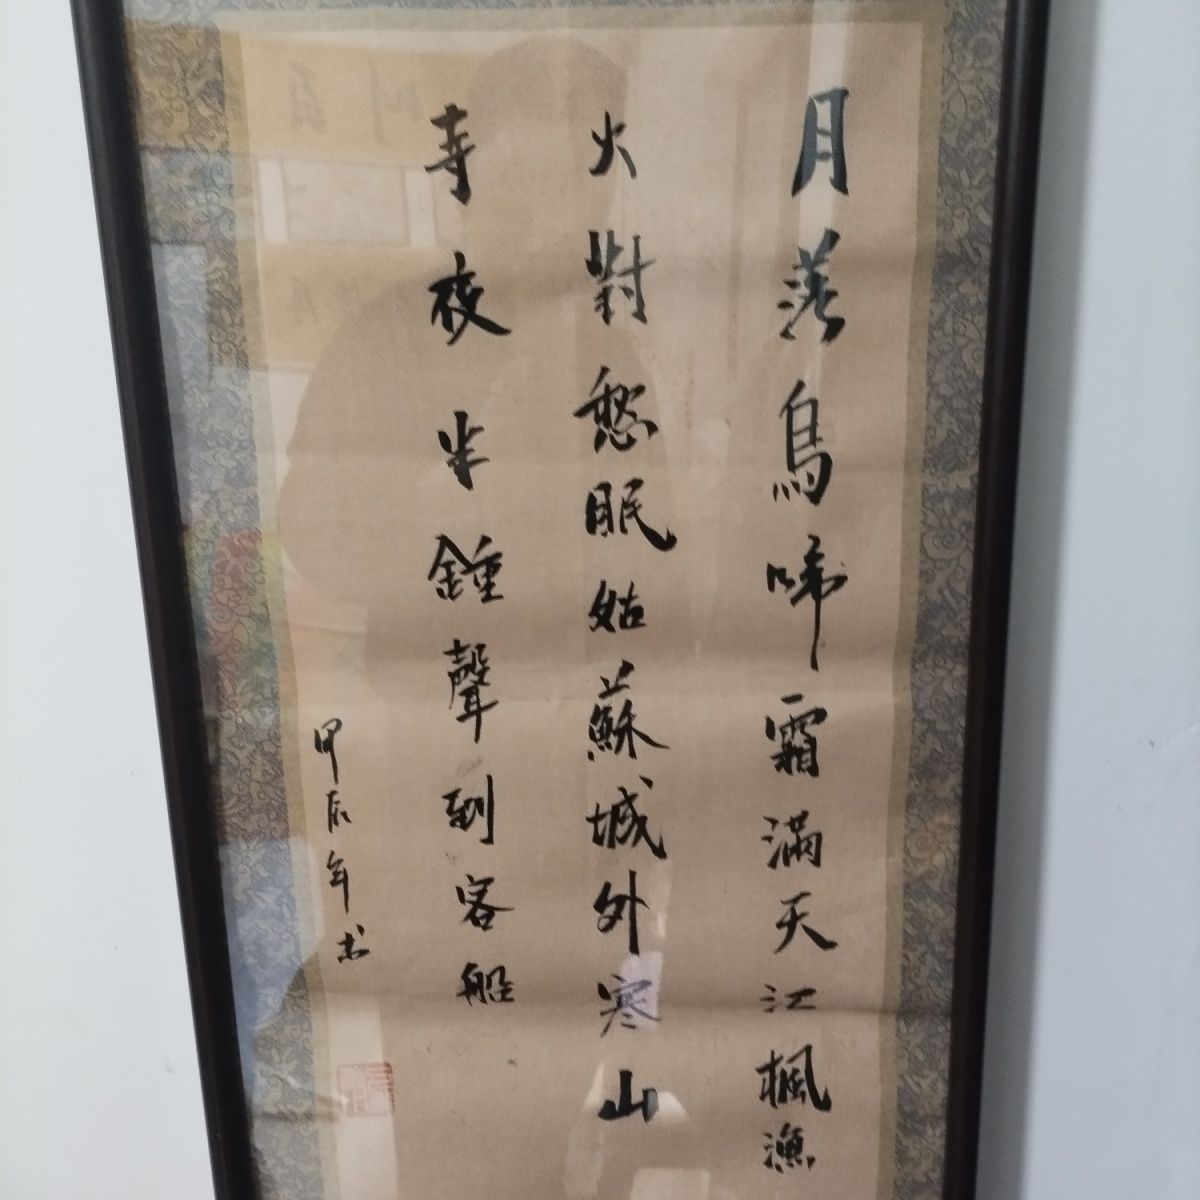 月落烏啼霜滿天江楓漁
火對愁眠姑蘇城外寒山
寺夜半鍾聲到客船
甲辰年